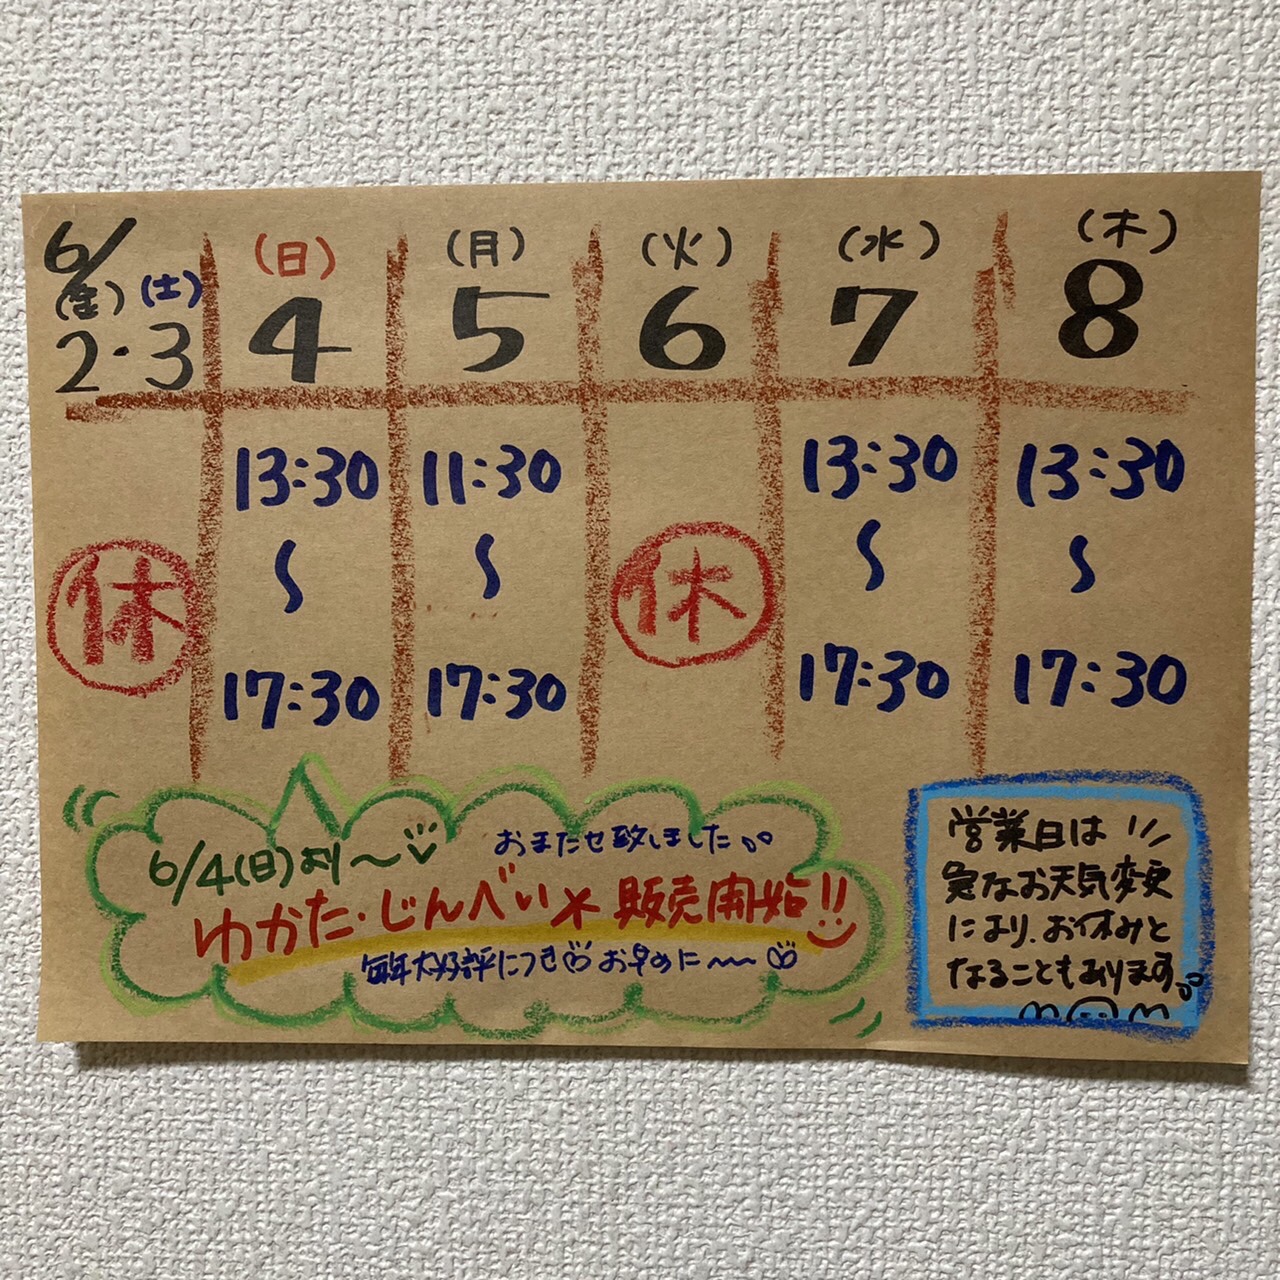 6/
(金) (土)
2・3
(日)
4
(月)
5
(火)
6
(水)
7
(木)
8
休
13:30
〜
17:30
11:30
〜
17:30
休
13:30
〜
17:30
13:30
〜
17:30
6/4(日)より〜
おまたせ致しました。。
ゆかた・じんべい 販売開始!!
毎年大好評につき お早めに〜〜
営業日は
急なお天気変更
により、お休みと
なることもあります。。